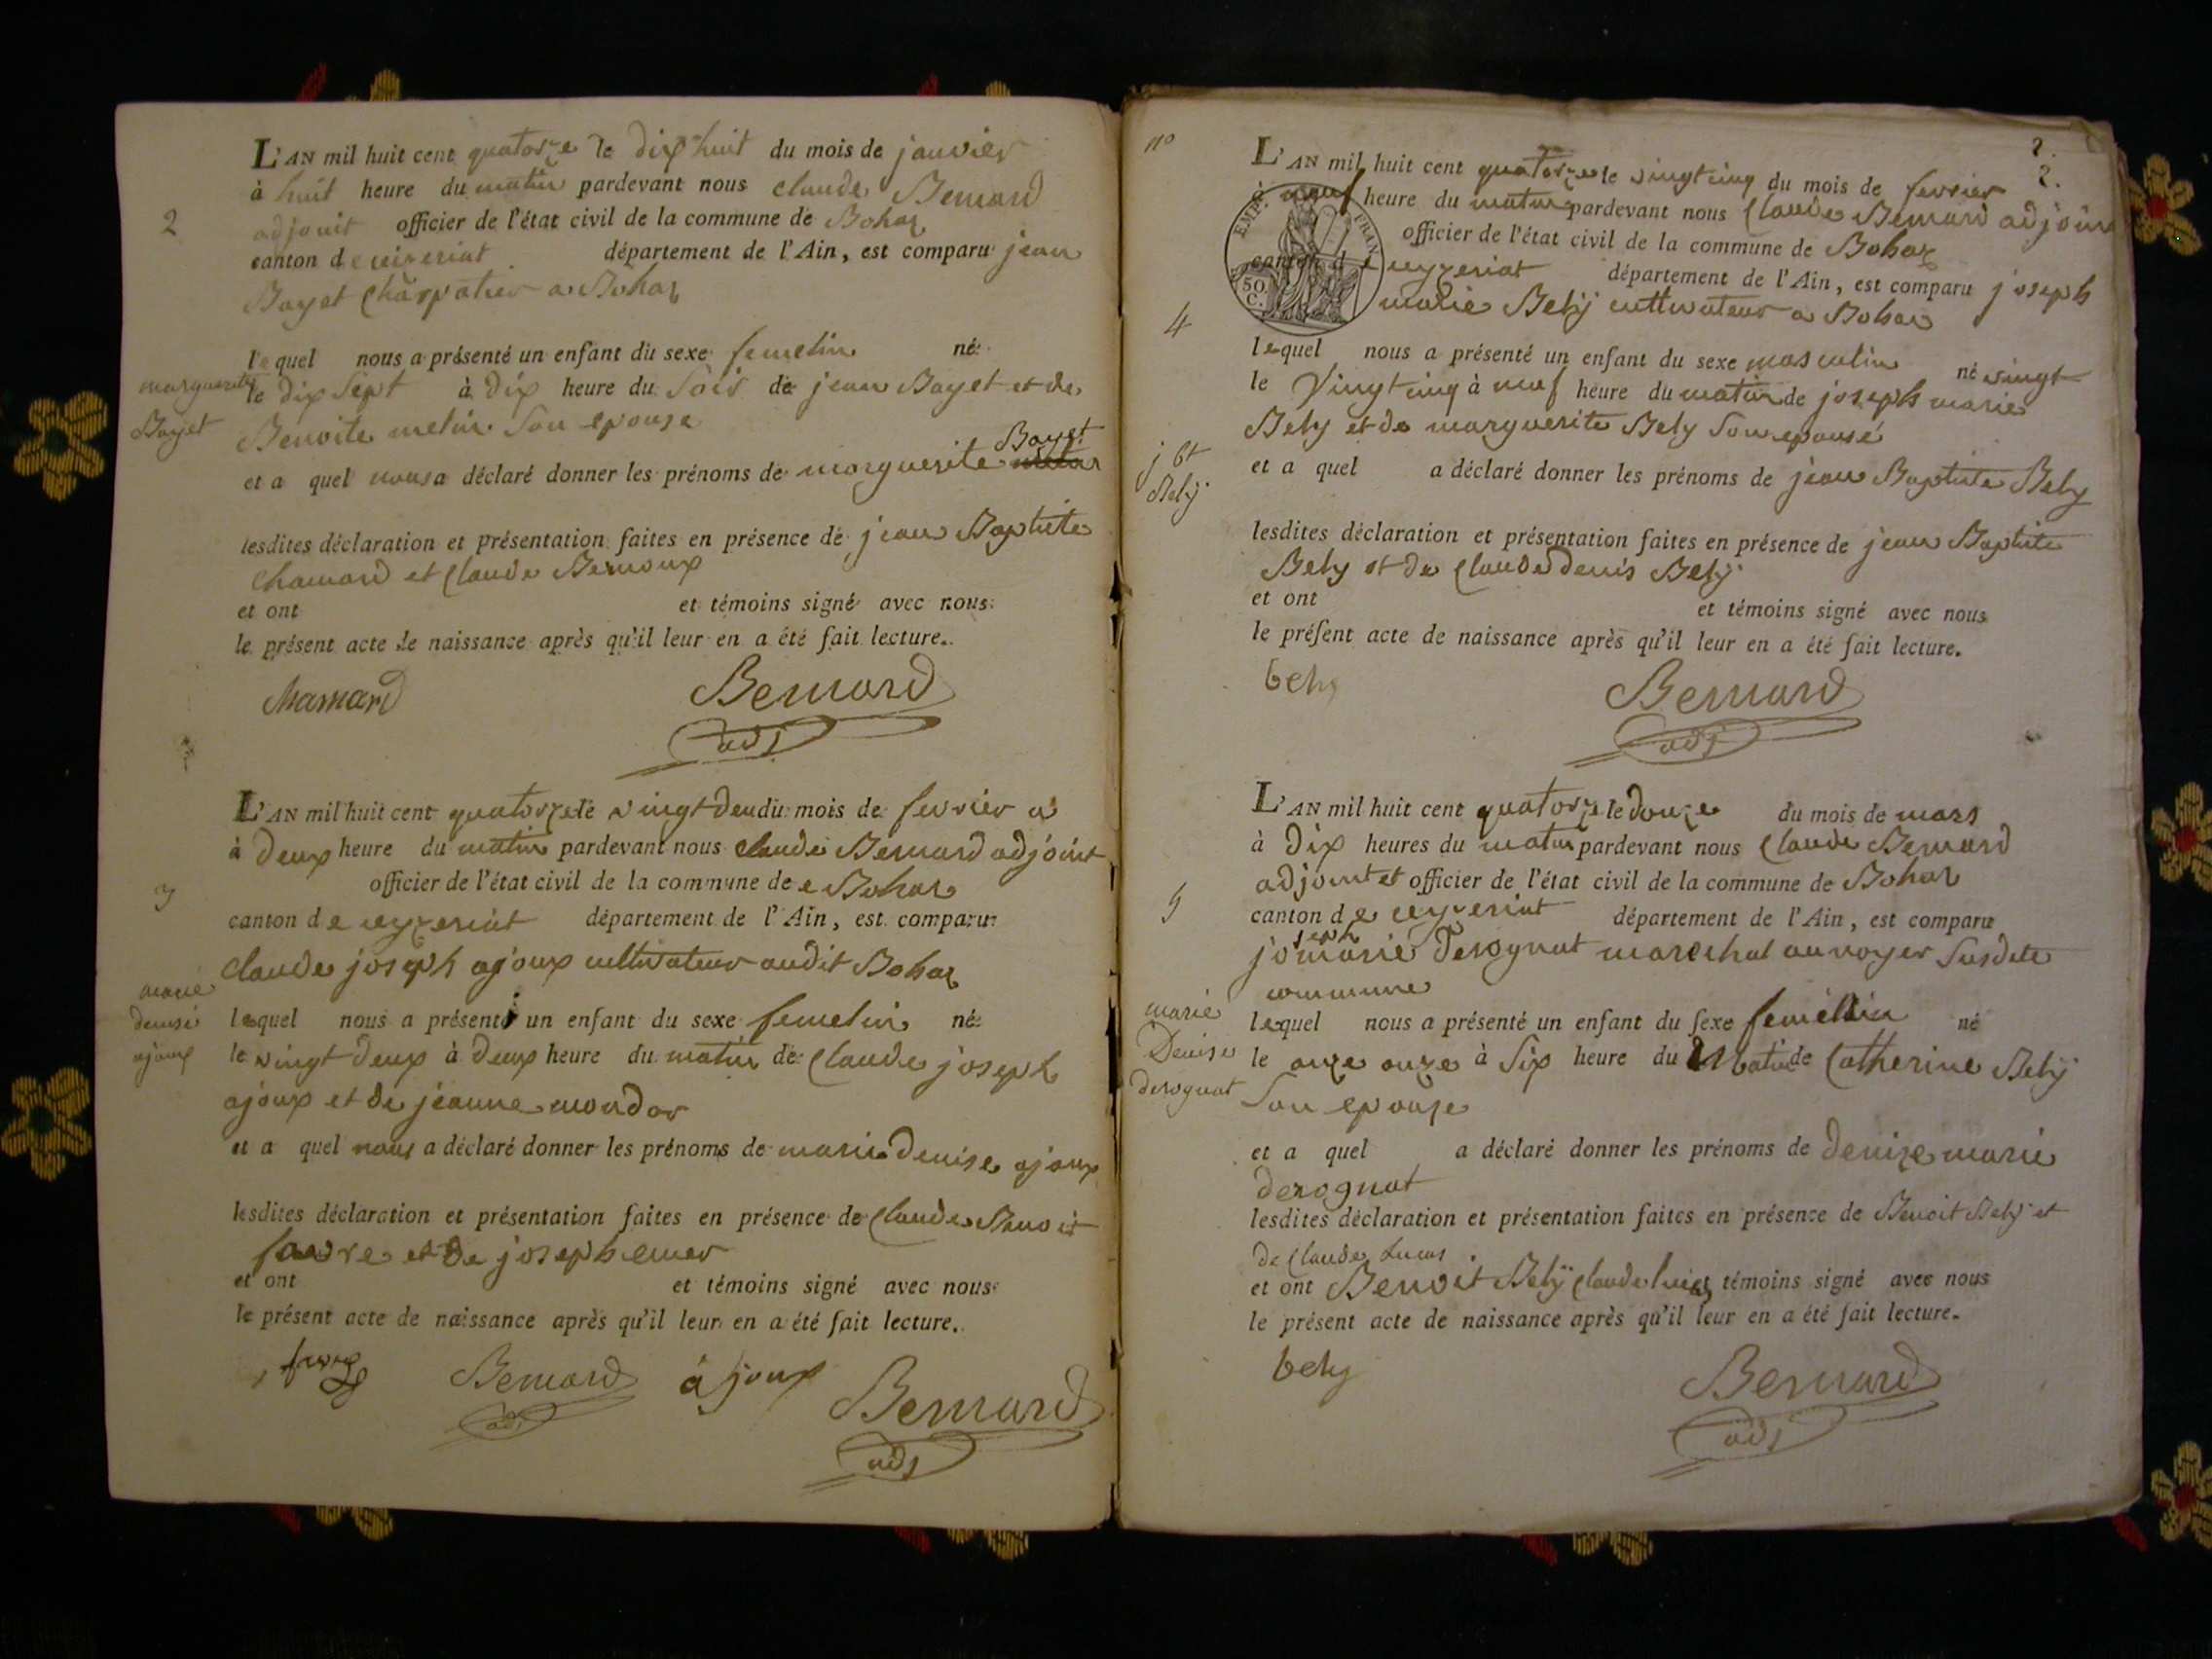 L'AN mil huit cent quatorze le dix huit du mois de janvier
à huit heure du matin pardevant nous claude Bernard
2
adjouit officier de l'état civil de la commune de Bohaz
canton de ceizeriat département de l'Ain, est comparu jean
Bayet Charpatier a Bohaz
lequel nous a présenté un enfant du sexe femelin né
marguerite
Bayet
le dix sept à dix heure du soir de jean Bayet et de
Benoite melin son epouse
Bayet
et a quel nous a déclaré donner les prénoms de marguerite
lesdites déclaration et présentation faites en présence de jean Baptiste
Chamard et Claude Bernoux
et ont et témoins signé avec nous
le présent acte de naissance après qu'il leur en a été fait lecture.
Chamard Bernard
adj
L'AN mil huit cent quatorze le vingt deu du mois de fevrier a
à deux heure du matin pardevant nous claude Bernard adjoint
officier de l'état civil de la commune de e Bohaz
3
canton de ceyzeriat département de l'Ain, est comparu
claude joseph ajoux cultivateur audit Bohaz
marie
denise
ajoux
lequel nous a présenté un enfant du sexe femelin né
le vingt deux à deux heure du matin de Claude joseph
ajoux et de jeanne mondor
et a quel nous a déclaré donner les prénoms de marie denise ajoux
lesdites déclaration et présentation faites en présence de Claude Benoit
favre et de joseph
et ont et témoins signé avec nous
le présent acte de naissance après qu'il leur en a été fait lecture.
Bernard ajoux Bernard
adj adj
no
2.
2.
L'AN mil huit cent quatorze le vingt cinq du mois de fevrier
à neuf heure du matin pardevant nous Claude Bernard adjoint
officier de l'état civil de la commune de Bohaz
EMP. FRAN
50
C.
canton de ceyzeriat département de l'Ain, est comparu joseph
4
marie Bely cultivateur a Bohaz
lequel nous a présenté un enfant du sexe masculin né vingt
le Vingt cinq à neuf heure du matin de joseph marie
Bely et de marguerite Bely son epouse
j bt
Bely
et a quel a déclaré donner les prénoms de jean Baptiste Bely
lesdites déclaration et présentation faites en présence de jean Baptiste
Bely et de Claude denis Bely
et ont et témoins signé avec nous
le présent acte de naissance après qu'il leur en a été fait lecture.
bely Bernard
adj
L'AN mil huit cent quatorze le douze du mois de mars
à dix heures du matin pardevant nous Claude Bernard
adjoint et officier de l'état civil de la commune de Bohaz
5
canton de ceyzeriat département de l'Ain, est comparu
joseph marie derognat marechal au noyer susdite
commune
marie
Denise
derognat
lequel nous a présenté un enfant du sexe femellin né
le onze onze à six heure du Matin de Catherine Bely
son epouse
et a quel a déclaré donner les prénoms de denize marie
derognat
lesdites déclaration et présentation faites en présence de Benoit Bely et
de Claude Lucas
et ont Benoit Bely Claude témoins signé avec nous
le présent acte de naissance après qu'il leur en a été fait lecture.
bely Bernard
adj